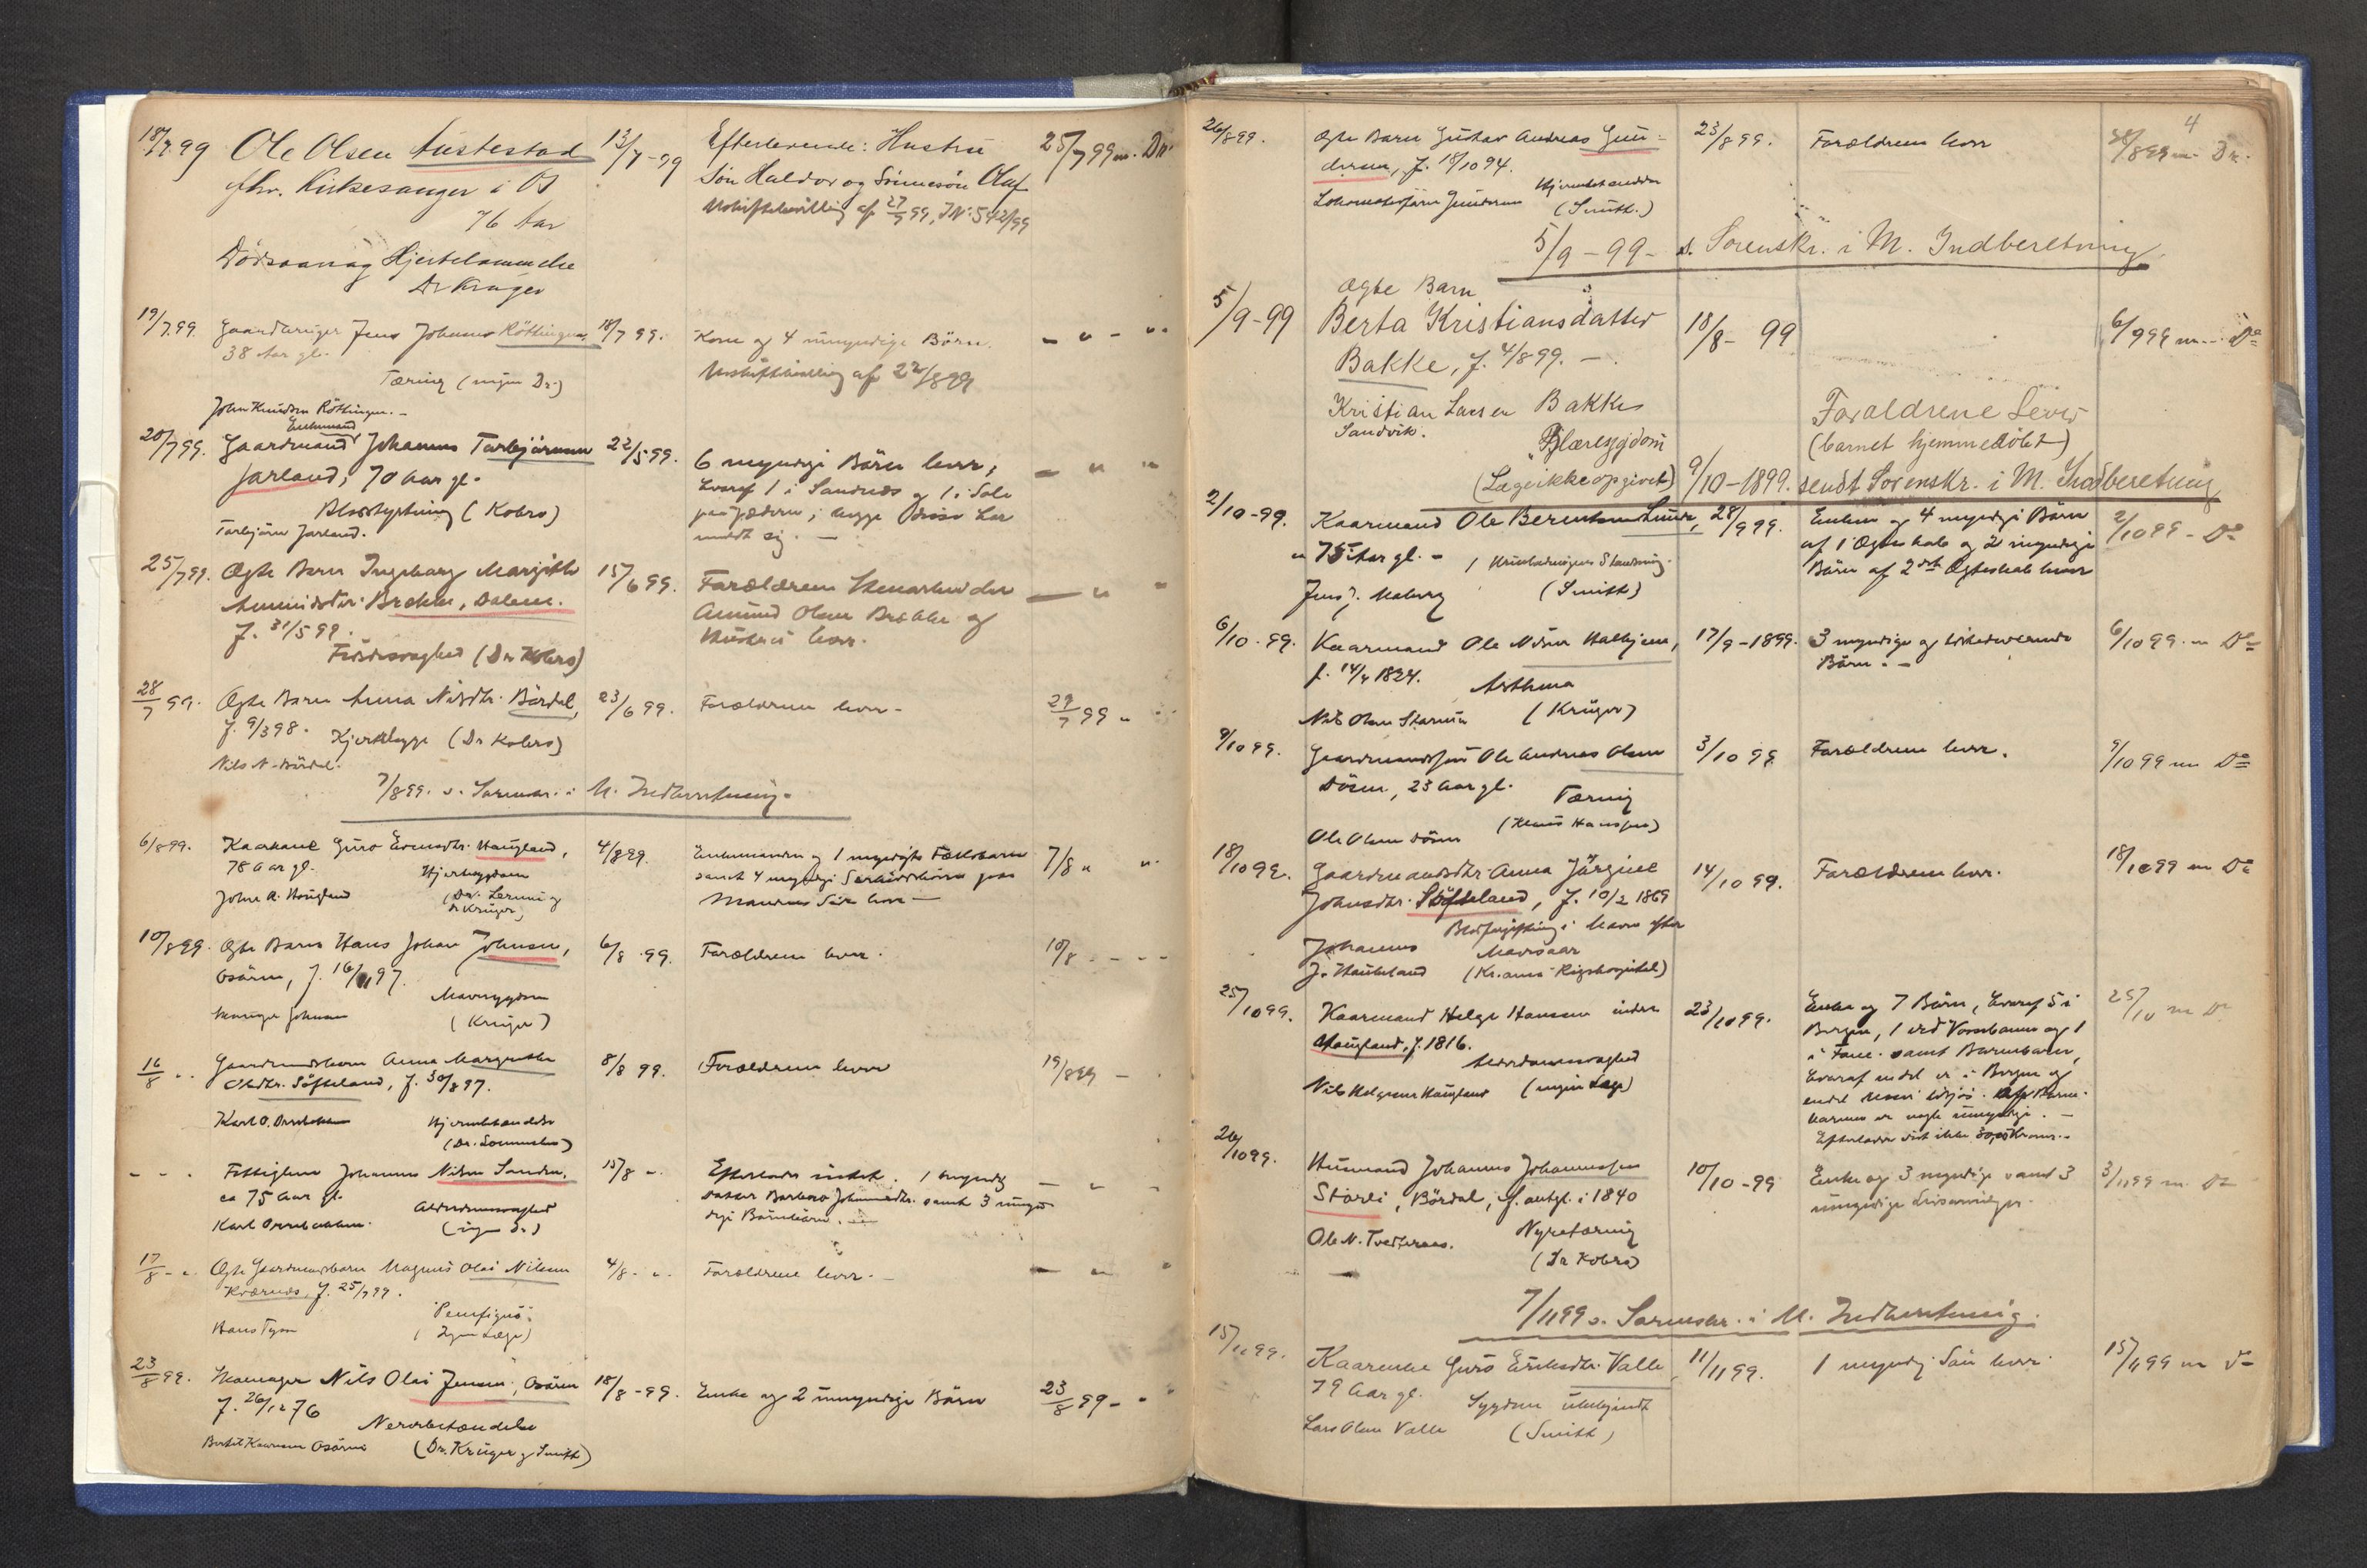 18/7 99 Ole Olsen Austestad 13/7-99 Efterlevende: Hustru 25/7 99 m. Dr.
fhv. Kirkesanger i Os Søn Haldor og Sønnesøn Olaf
76 Aar Uskiftebevilling af 27/9 99, JNo 542/99
Dødsaarsag Hjertelammelse
Dr Krüger
19/7 99. Gaardbruger Jens Johannes Röttingen. 18/7 99. Kone og 4 umyndige Börn. - " - "
38 Aar gl. Uskiftebevilling af 22/8 99
Tæring (ingen Dr.)
John Knudsen Röttingen. -
Enkemand
20/7 99. Gaardmand Johannes Torbjörnsen 22/5 99. 6 myndige Börn lever, - " "
Jarland, 70 Aar gl. hvoraf 1 i Sandnæs og 1 i Sole
Blodstyrtning (Kobro) paa Jæderen; begge disse har
Torbjörn Jarland. meldt sig. -
25/7 99. Ægte Barn Ingeborg Margithe 15/6 99. Forældrene Stenarbeider - " "
Amundsdtr. Brekke, Dalene. Amund Olsen Brekke og
f. 31/5 99. Hustru lever.
Födselssvaghed (Dr Kobro)
28/7 99. Ægte Barn Anna Nilsdtr. Bördal, 23/6 99. Forældrene lever - 29/7 99 "
f. 9/3 98. Kjertelsyge (Dr Kobro)
Nils N. Bördal.
7/8 99. s. Sorenskr. i M. Indberetning.
6/8 99. Kaarkone Guro Hougland, 4/8 99. Enkemanden og 1 myndigt Fællesbarn 7/8 " "
78 Aar gl. Hjertesygdom samt 4 myndige Særkuldsbörn paa
John A. Hougland (Dr. og Mandens Side lever -
Dr Krüger)
10/8 99. Ægte Barn Hans Johan Johnsen, 6/8 99. Forældrene lever. 10/8 - - - -
Osören, f. 16/11 97.
Mavesygdom
Johnsen (Krüger)
16/8 " Gaardmandsbarn Anna Margrethe 8/8 99. Forældrene lever 19/8 99 -
Olsdtr. Söfteland, f. 30/8 97.
Karl O. Hjernebetændelse
(Dr. )
- - - Fattiglem Johannes Nilsen 15/8 ". Efterlader intet. 1 myndig - " -
ca 75 Aar gl. Datter Barbro Johannesdtr. samt 3 umyn-
Alderdomssvaghed dige Barnebörn.
Karl (ingen Dr.)
17/8 - ". Ægte Gaardmandsbarn Magnus Olai Nilsen 4/8 - ". Forældrene lever. - - " "
f. 25/7 99.
"Pemfigus".
Hans Tysse (Ingen Læge)
23/8 99. Nils Olai Jensen, Osören 18/8 -99. Enke og 2 umyndige Börn 23/8 99 - "
f. 26/12 76 Nervebetændelse
Osören (Dr. Krüger og Smith)
4
26/8 99. Ægte Barn Gustav Andreas Gun- 23/8 99. Forældrene lever 28/8 99 m. Dr.
dersen, f. 18/10 94. Hjernebetændelse
Lokomotivförer Gundersen (Smith.)
5/9 - 99 - s. Sorenskr. i M. Indberetning
Ægte Barn
5/9-99 Berta Kristiansdatter 18/8- 99 6/9 99 m. Do
Bakke, f. 4/8 99. -
Kristian Larsen Bakke Forældrene Lever
Sandvik. (barnet hjemmedöbt)
Blæresygdom
(Læge ikke opgivet) 9/10-1899. sendt Sorenskr. i M. Indberetning
2/10-99. Kaarmand Ole Berentsen Lunde, 28/9 99. Enken og 4 myndige Börn 2/10 99 - Do
75 Aar gl. - Urinladningens Standsning. af 1 Ægteskab og 2 myndige
Jens J. Moberg (Smith) Börn af 2det Ægteskab lever
6/10 - 99. Kaarmand Ole Nilsen Halhjem, 17/9 -1899. 3 myndige og tilstedeværende 6/10 99. m Do
f. 14/4 1824. Asthma Börn. -
Nils Olsen (Krüger)
9/10 99. Gaardmandssön Ole Andreas Olsen 3/10 99 Forældrene lever. 9/10 99 m Do
Dösen, 23 Aar gl. Tæring
(Klaus Hanssen)
Ole Olsen Dösen
18/10 99. Gaardmandsdtr. Anna Jörgine 14/10 99. Forældrene lever. 18/10 99 m Do
Johnsdtr. Söfteland, f. 10/2 1869
Blodforgiftning i Maven efter
Johannes Mavesaar
J. Haukeland (Kr.ania Rigshospital)
25/10 99. Kaarmand Helge Hansen indre 23/10 99. Enke og 7 Börn, hvoraf 5 i 25/10 m Do
Hougland, f. 1816. Bergen, 1 ved Vossebanen og 1
Alderdomssvaghed i Fane. samt Barnebörn,
Nils Helgesen Hougland (ingen Læge) hvoraf endel er i Bergen og
endel . Af Barne-
börnene er nogle umyndige. -
Efterlader vist ikke Kroner. -
26/10 99. Husmand Johannes Johannessen 10/10 -99 Enke og 3 myndige samt 3 3/11 99 m. Do
Storli, Bördal, f. antgl. i 1840 umyndige Livsarvinger.
Ole N. Tveteraas. Nyretæring
(Dr Kobro)
7/11 99 s. Sorenskr. i M. Indberetning.
15/11 99. Kaarenke Guro Eriksdtr. Valle 11/11 99. 1 myndig Sön lever. 15/11 99 m Do
79 Aar gl. Sygdom ubekjendt
Lars Olsen Valle (Smith)